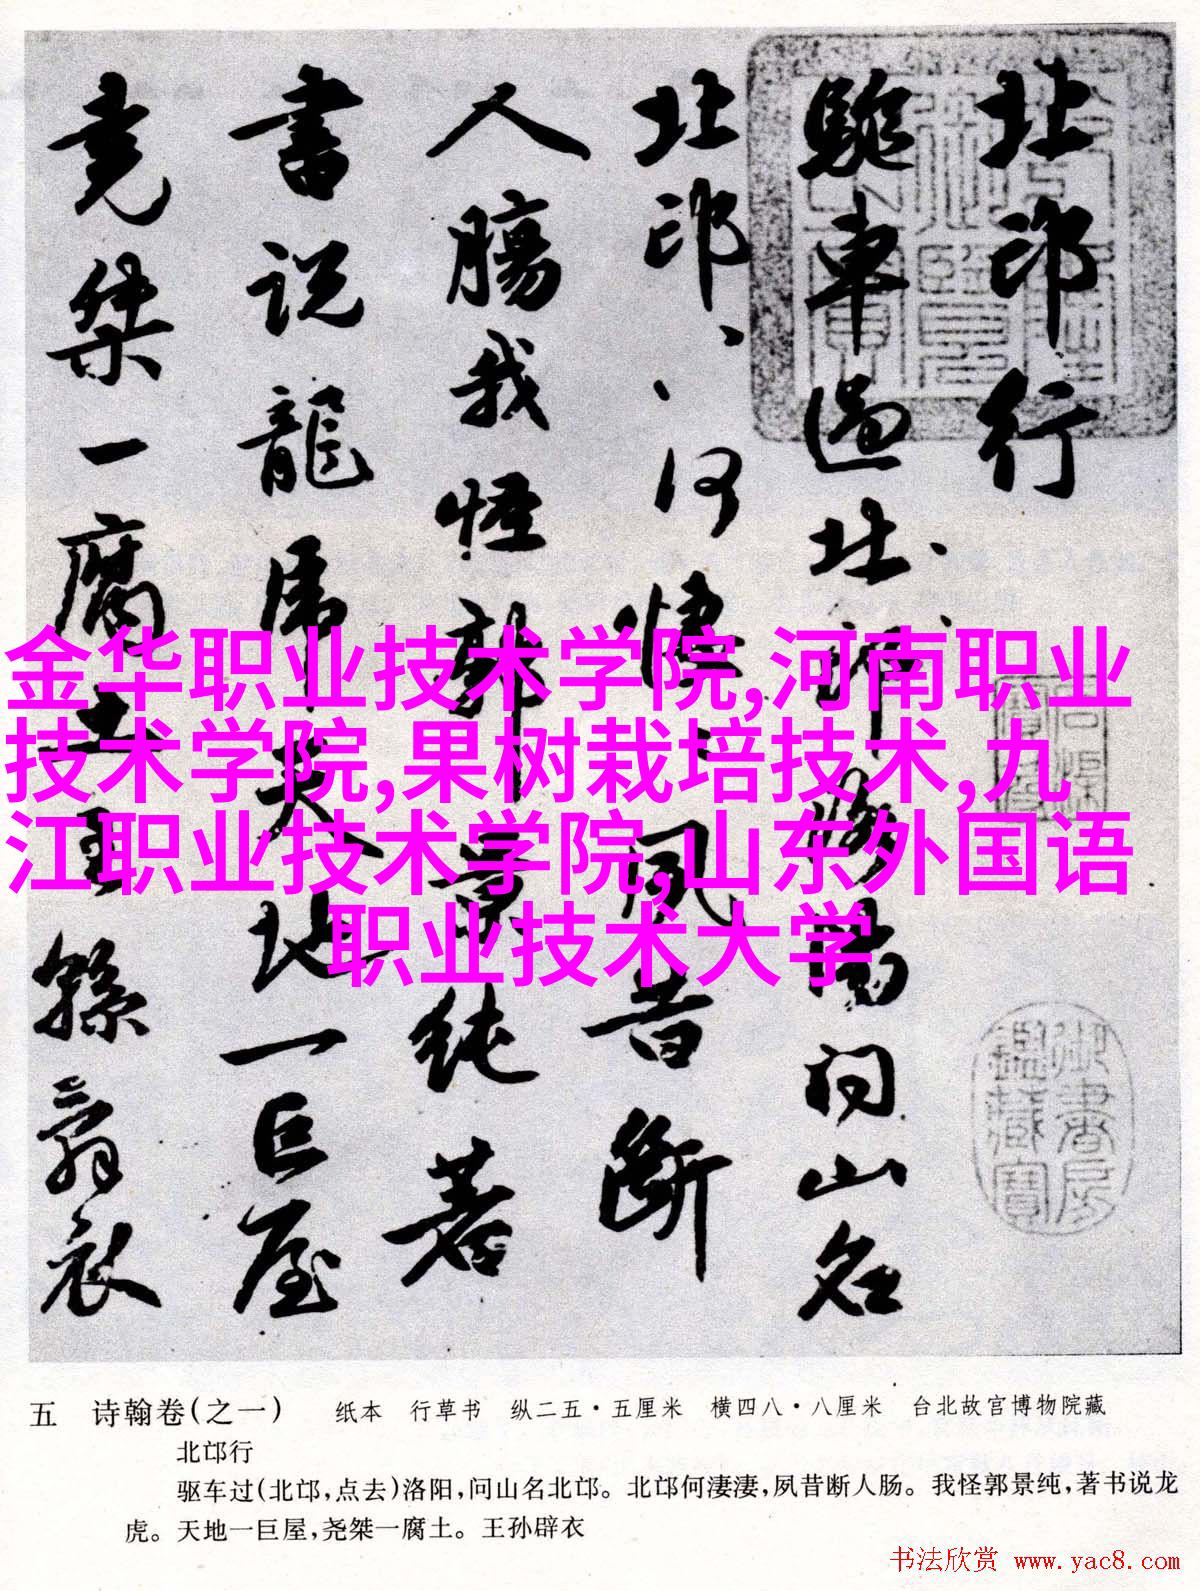 北邙行
駈車過北邙洛陽问山名
北邙、、何悽、夙昔斷
人腸我怪郭景纯著
書说龍虎天地一巨屋
堯桀一腐土王孫辟衣
金华职业技术学院,河南职业
技术学院,果树栽培技术,九
江职业技术学院,山东外国语
职业技术大学
五 诗翰卷(之一) 纸本 行草书 纵二五·五厘米 横四八·八厘米 台北故宫博物院藏
北邙行
驱车过(北邙,点去)洛阳,问山名北邙。北邙何淒淒,夙昔断人肠。我怪郭景纯,著书说龙
虎。天地一巨屋,尧桀一腐土。王孙辟衣
书法欣赏 www.yac8.com